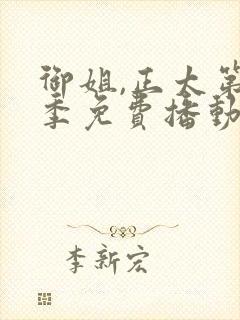 御姐,正太第
季免費播動
李新宏